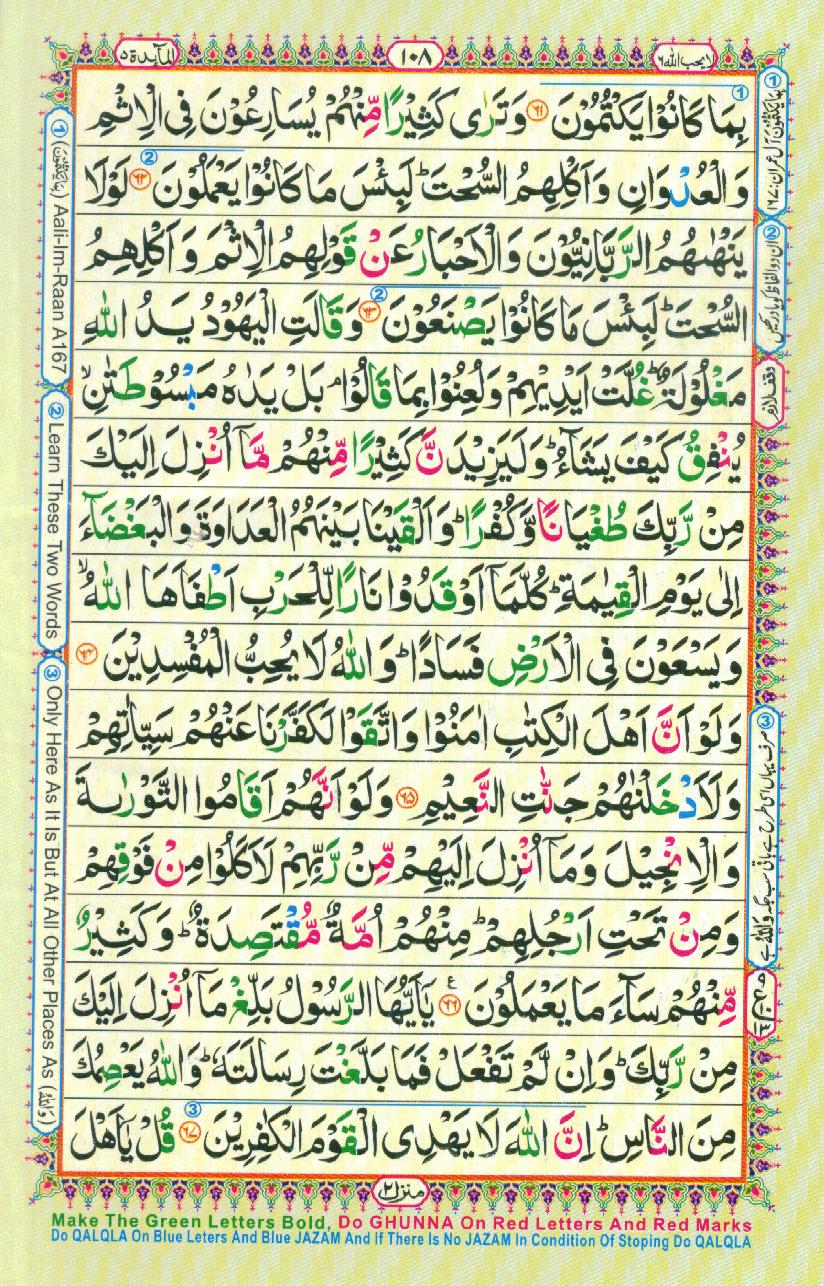 المآئدة ۵
۱۰۸
لا يحب الله ۶
بِمَا كَانُوۡا يَكۡتُمُوۡنَ ﴿۶۱﴾ وَتَرٰى كَثِيۡرًا مِّنۡهُمۡ يُسَارِعُوۡنَ فِى الۡاِثۡمِ
وَالۡعُدۡوَانِ وَاَكۡلِهِمُ السُّحۡتَ‌ؕ لَبِئۡسَ مَا كَانُوۡا يَعۡمَلُوۡنَ ﴿۶۲﴾ لَوۡلَا
يَنۡهٰٮهُمُ الرَّبَّانِيُّوۡنَ وَالۡاَحۡبَارُ عَنۡ قَوۡلِهِمُ الۡاِثۡمَ وَاَكۡلِهِمُ
السُّحۡتَ‌ؕ لَبِئۡسَ مَا كَانُوۡا يَصۡنَعُوۡنَ ﴿۶۳﴾ وَقَالَتِ الۡيَهُوۡدُ يَدُ اللّٰهِ
مَغۡلُوۡلَةٌ‌ ؕ غُلَّتۡ اَيۡدِيۡهِمۡ وَلُعِنُوۡا بِمَا قَالُوۡا‌ۘ بَلۡ يَدٰهُ مَبۡسُوۡطَتٰنِۙ
يُنۡفِقُ كَيۡفَ يَشَآءُ‌ؕ وَلَيَزِيۡدَنَّ كَثِيۡرًا مِّنۡهُمۡ مَّاۤ اُنۡزِلَ اِلَيۡكَ
مِنۡ رَّبِّكَ طُغۡيَانًا وَّكُفۡرًا‌ؕ وَاَلۡقَيۡنَا بَيۡنَهُمُ الۡعَدَاوَةَ وَالۡبَغۡضَآءَ
اِلٰى يَوۡمِ الۡقِيٰمَةِ‌ؕ كُلَّمَاۤ اَوۡقَدُوۡا نَارًا لِّلۡحَرۡبِ اَطۡفَاَهَا اللّٰهُ‌ۙ
وَيَسۡعَوۡنَ فِى الۡاَرۡضِ فَسَادًا‌ؕ وَاللّٰهُ لَا يُحِبُّ الۡمُفۡسِدِيۡنَ ﴿۶۴﴾
وَلَوۡ اَنَّ اَهۡلَ الۡكِتٰبِ اٰمَنُوۡا وَاتَّقَوۡا لَكَفَّرۡنَا عَنۡهُمۡ سَيِّاٰتِهِمۡ
وَلَاَدۡخَلۡنٰهُمۡ جَنّٰتِ النَّعِيۡمِ ﴿۶۵﴾ وَلَوۡ اَنَّهُمۡ اَقَامُوا التَّوۡرٰٮةَ
وَالۡاِنۡجِيۡلَ وَمَاۤ اُنۡزِلَ اِلَيۡهِمۡ مِّنۡ رَّبِّهِمۡ لَاَكَلُوۡا مِنۡ فَوۡقِهِمۡ
وَمِنۡ تَحۡتِ اَرۡجُلِهِمۡ‌ؕ مِنۡهُمۡ اُمَّةٌ مُّقۡتَصِدَةٌ‌ ؕ وَكَثِيۡرٌ
مِّنۡهُمۡ سَآءَ مَا يَعۡمَلُوۡنَ ﴿۶۶﴾ ع يٰۤاَيُّهَا الرَّسُوۡلُ بَلِّغۡ مَاۤ اُنۡزِلَ اِلَيۡكَ
مِنۡ رَّبِّكَ‌ؕ وَاِنۡ لَّمۡ تَفۡعَلۡ فَمَا بَلَّغۡتَ رِسَالَتَهٗ‌ ؕ وَاللّٰهُ يَعۡصِمُكَ
مِنَ النَّاسِ‌ؕ اِنَّ اللّٰهَ لَا يَهۡدِى الۡقَوۡمَ الۡكٰفِرِيۡنَ ﴿۶۷﴾ قُلۡ يٰۤاَهۡلَ
منزل ۲
① (بِمَا يَكْتُمُوْنَ) Aali-Im-Raan A167
② Learn These Two Words
③ Only Here As It Is But At All Other Places As (وَاللّٰهُ)
① بِمَا يَكْتُمُوْنَ آل عمران: ۱۶۷
② ان دو الفاظ کو یاد رکھیں
وقف لازم
③ صرف یہاں اسی طرح ہے باقی سب جگہ وَاللّٰهُ ہے
Make The Green Letters Bold, Do GHUNNA On Red Letters And Red Marks
Do QALQLA On Blue Leters And Blue JAZAM And If There Is No JAZAM In Condition Of Stoping Do QALQLA